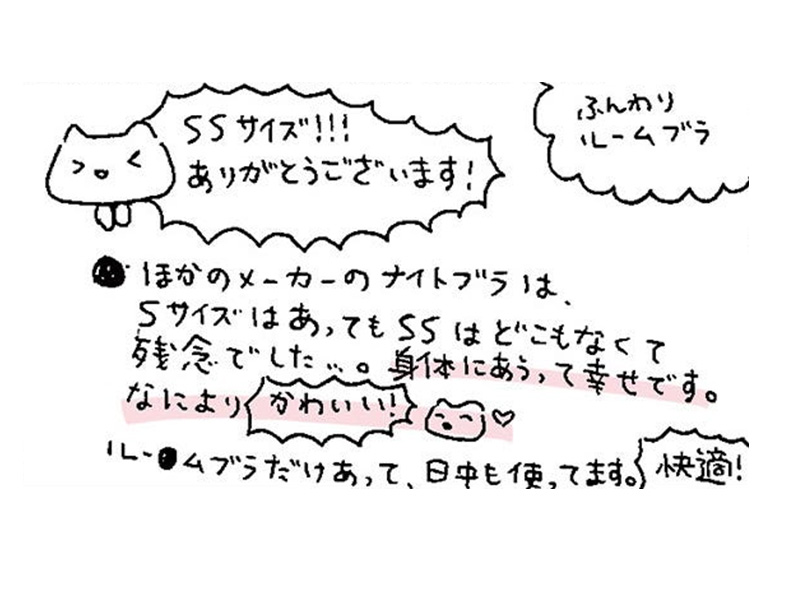 SSサイズ!!!
ありがとうございます!
ふんわり
ルームブラ
ほかのメーカーのナイトブラは、
Sサイズはあってもssはどこもなくて
残念でした…。身体にあうって幸せです。
なにより かわいい!
ルームブラだけあって、日中も使ってます。快適!